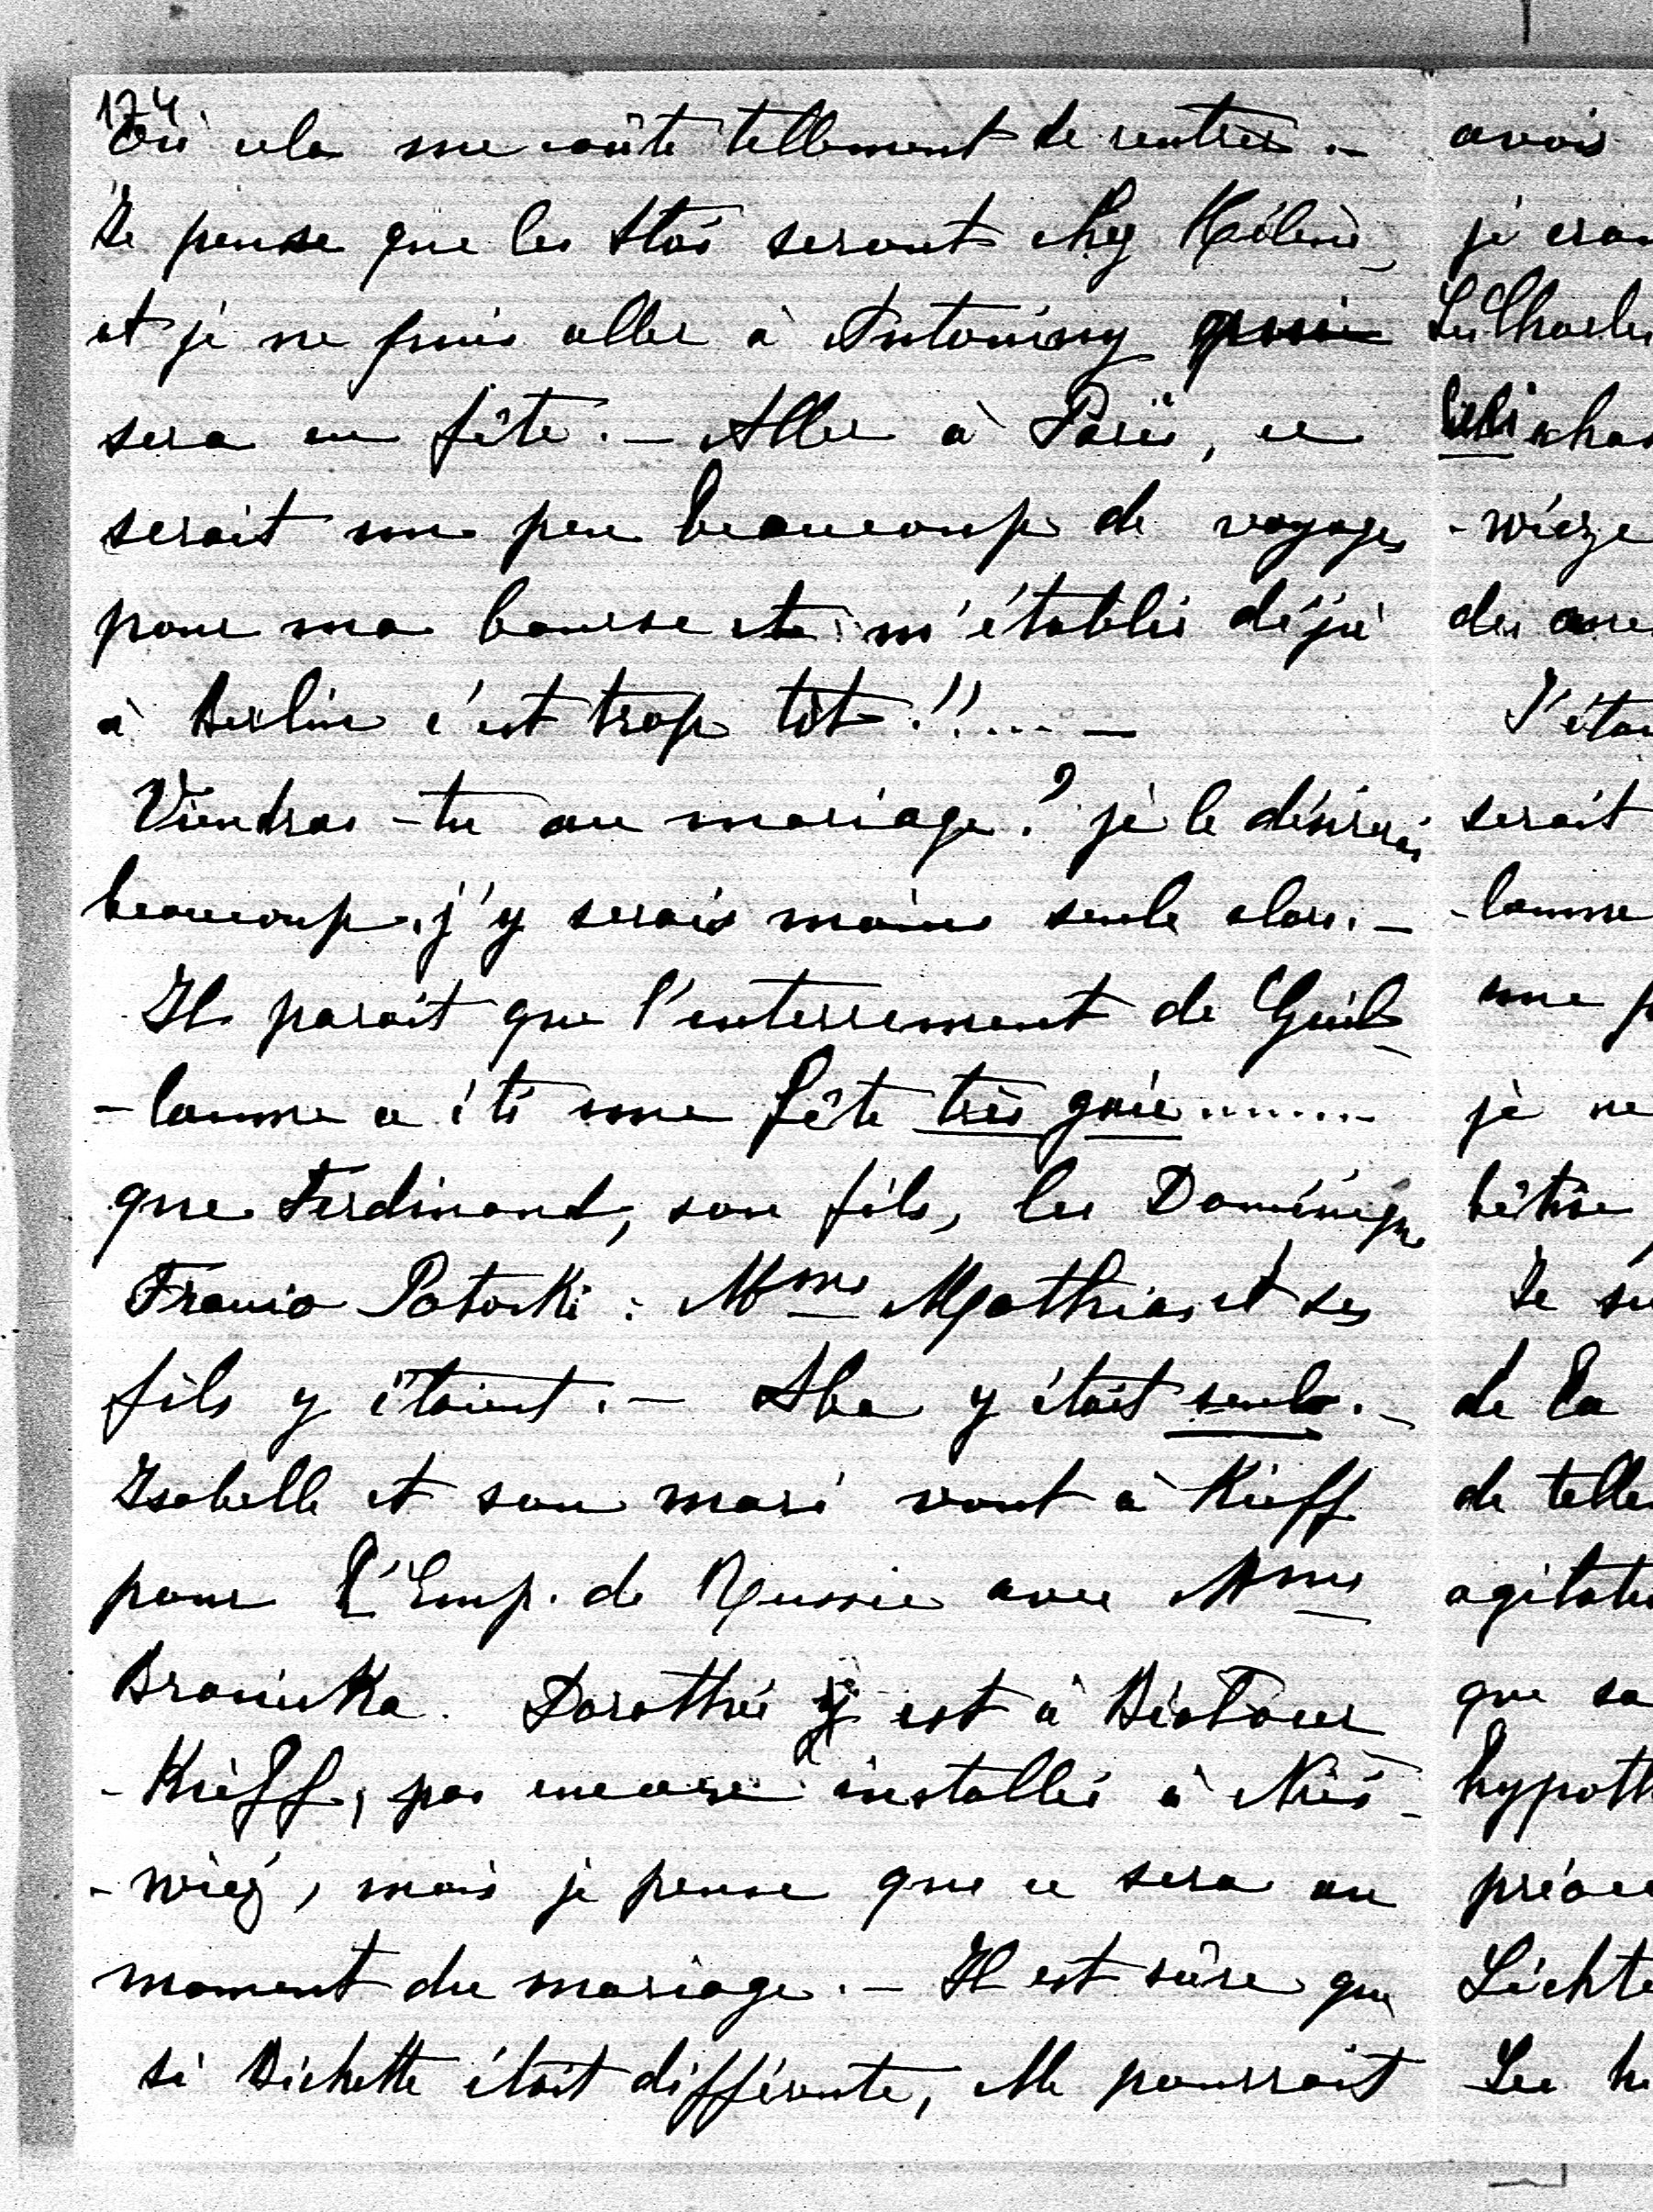 174
où cela me coûte tellement de rentrer. —
Je pense que les Stas seront chez Hélène,
et je ne puis aller à Antoniny qui
sera en fête. — Aller à Paris, ce
serait un peu beaucoup de voyages
pour ma bourse et m'établir déjà
à Berlin c'est trop tôt!!... —
Viendras-tu au mariage? je le désirerais
beaucoup, j'y serais moins seule alors. —
Il parait que l'enterrement de Guil-
-laume a été une fête très gaie.......
que Ferdinand, son fils, les Dominique
Francio Potocki: Mme Mathias et ses
fils y étaient. — Aba y était seule. —
Isabelle et son mari vont à Kieff
pour l'Emp. de Russie avec Mme
Branicka. Dorothée est à Biała Cer-
-Kieff, pas encore installée à Nies-
-wież, mais je pense que ce sera au
moment du mariage. — Il est sûre que
si Bichette était différente, elle pourrait
avois
je
Les Charles
-wieze
des
J'étai
serait
-laume
une
je ne
bêtise
Je
de la
de telle
agitatio
que sa
hypoth
Lichte